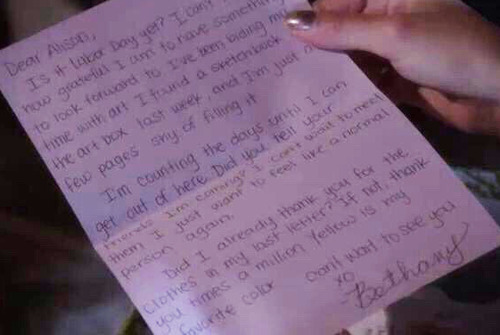 Dear Alison,
Is it Labor Day yet? I can't
how grateful I am to have somethin
to look forward to. I've been biding my
time with art I found a sketchbook
the art box last week, and I'm just a
few pages shy of filling it
I'm counting the days until I can
get out of here. Did you tell your
friends I'm coming? I can't wait to meet
them I just want to feel like a normal
person again.
Did I already thank you for the
clothes in my last letter? If not, thank
you times a million Yellow is my
favorite color
Can't wait to see you
xo
Bethany